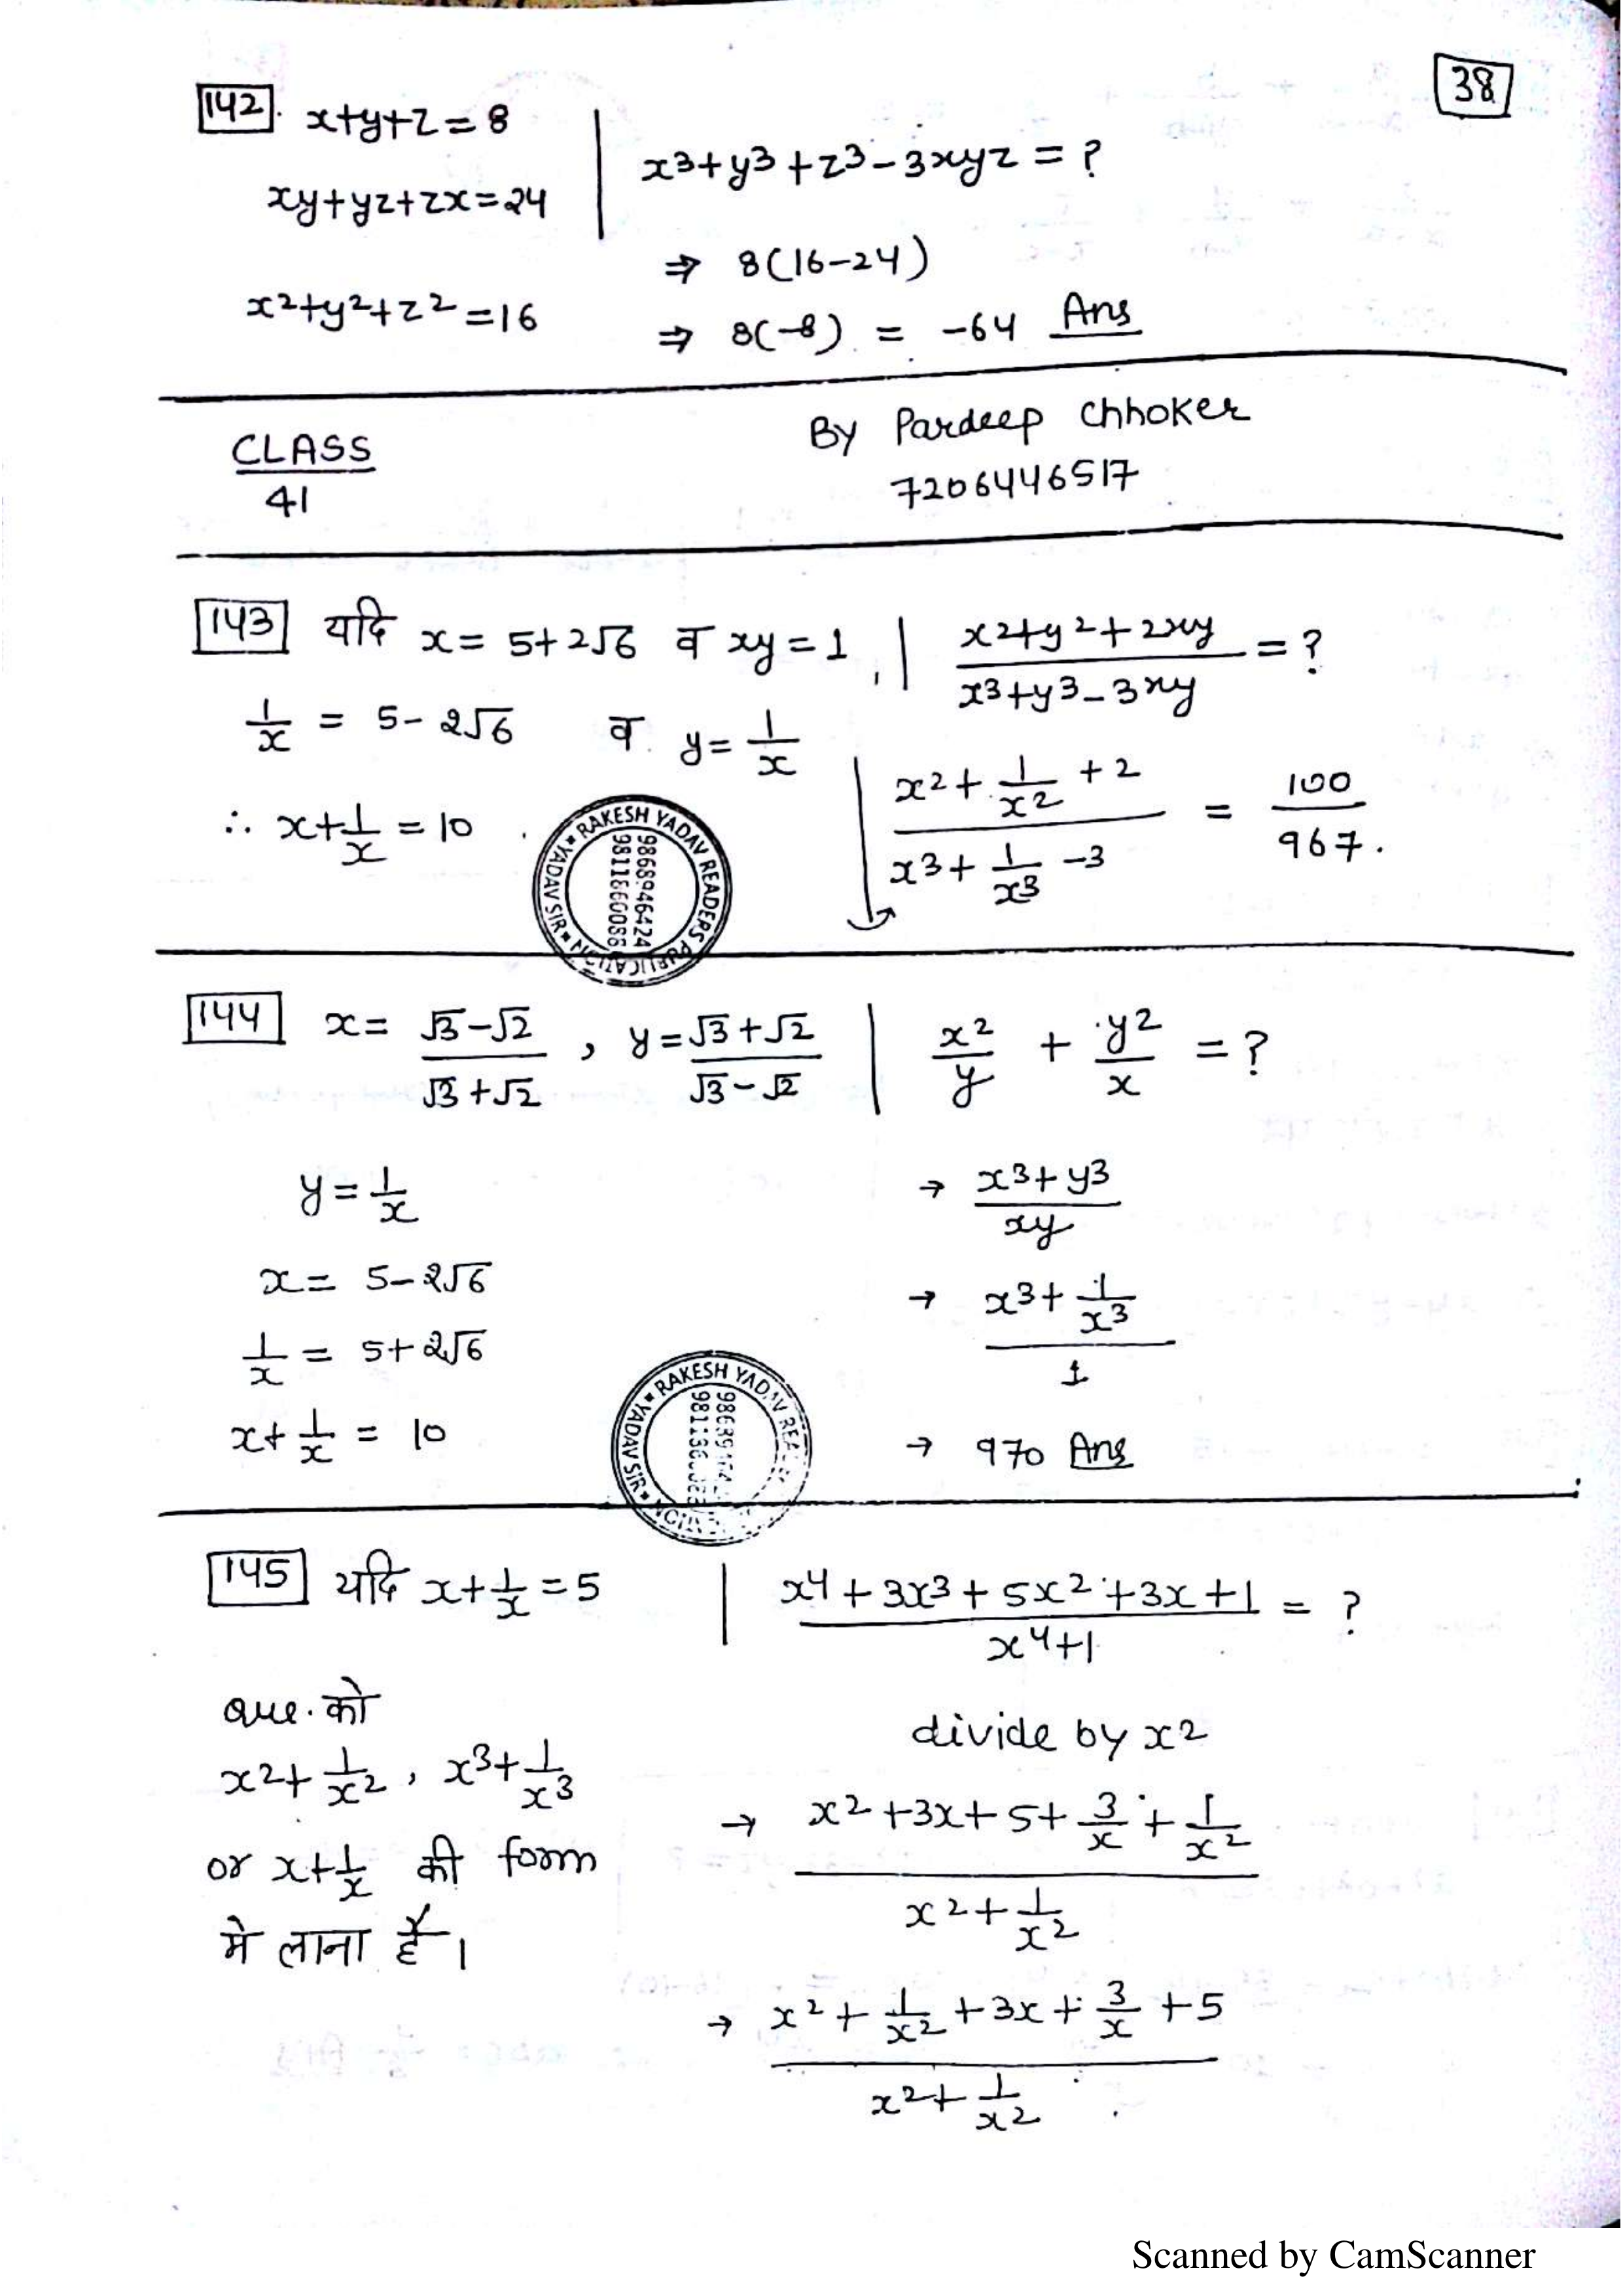 38
142. x+y+z=8
xy+yz+zx=24
x²+y²+z²=16
x³+y³+z³-3xyz=?
⇒ 8(16-24)
⇒ 8(-8) = -64 Ans
CLASS
41
By Pardeep Chhoker
7206446517
143 यदि x= 5+2√6 व xy=1, | (x²+y²+2xy)/(x³+y³-3xy) = ?
1/x = 5-2√6 व y=1/x
∴ x+1/x = 10
(x²+1/x²+2)/(x³+1/x³-3) = 100/967.
RAKESH YADAV READERS PUBLICATION
YADAV SIR
9868946424
9811860088
144 x= (√3-√2)/(√3+√2) , y= (√3+√2)/(√3-√2) | x²/y + y²/x = ?
y=1/x
x= 5-2√6
1/x = 5+2√6
x+1/x = 10
→ (x³+y³)/xy
→ (x³+1/x³)/1
→ 970 Ans
RAKESH YADAV
YADAV SIR
145 यदि x+1/x=5 | (x⁴+3x³+5x²+3x+1)/(x⁴+1) = ?
que. को
x²+1/x², x³+1/x³
or x+1/x की form
मे लाना है।
divide by x²
→ (x²+3x+5+3/x+1/x²)/(x²+1/x²)
→ (x²+1/x²+3x+3/x+5)/(x²+1/x²)
Scanned by CamScanner